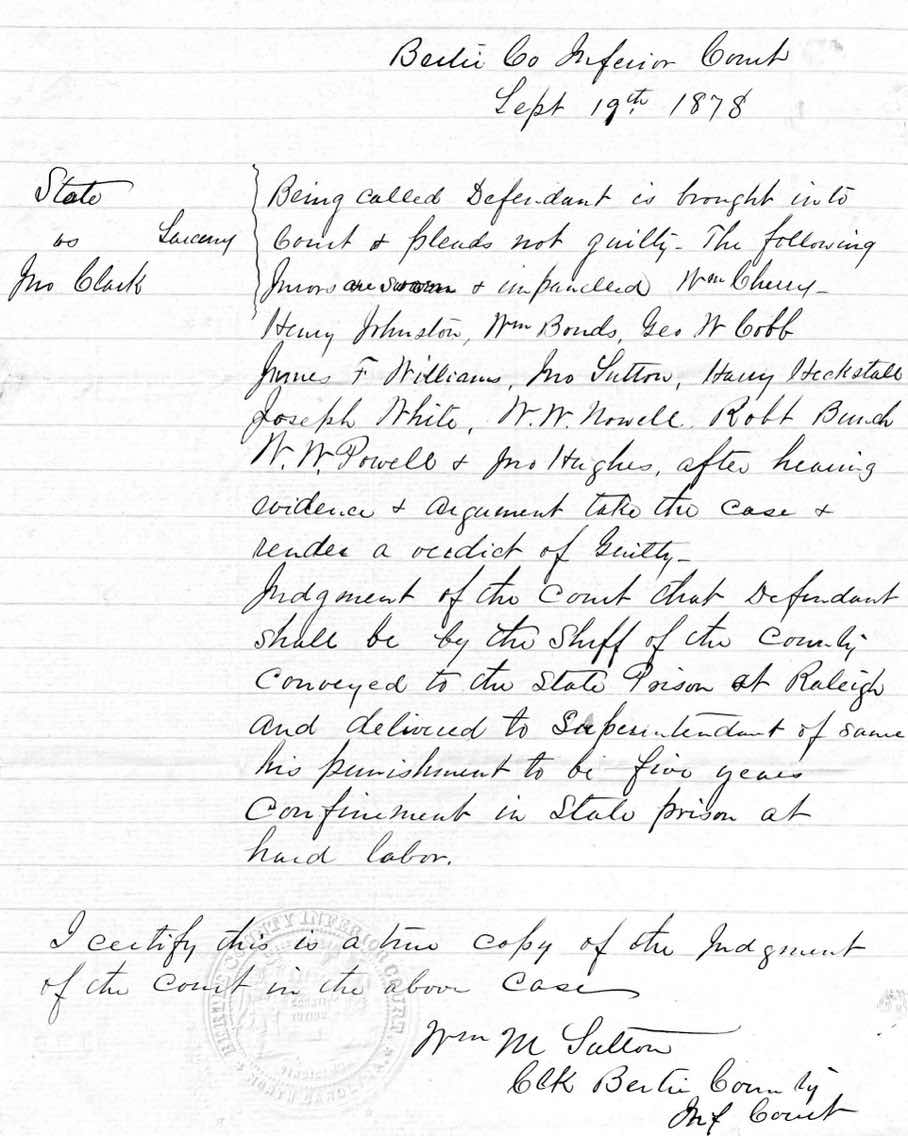 Bertie Co Inferior Court
Sept 19th 1878
State
vs Larceny
Jno Clark
Being called Defendant is brought into
Court & pleads not guilty - The following
Jurors are sworn & impanelled Wm Cherry -
Henry Johnston, Wm Bonds, Geo W Cobb
James F Williams, Jno Sutton, Harry Heckstall
Joseph White, W. W. Nowell, Robt Bunch
W. W. Powell & Jno Hughes, after hearing
evidence & argument take the case &
render a verdict of Guilty -
Judgment of the Court that Defendant
shall be by the Shff of the County
Conveyed to the State Prison at Raleigh
and delivered to Superintendant of same
his punishment to be five years
Confinement in State prison at
hard labor.
I certify this is a true copy of the Judgment
of the Court in the above case
Wm M Sutton
Clk Bertie County
Inf Court
BERTIE COUNTY INFERIOR COURT